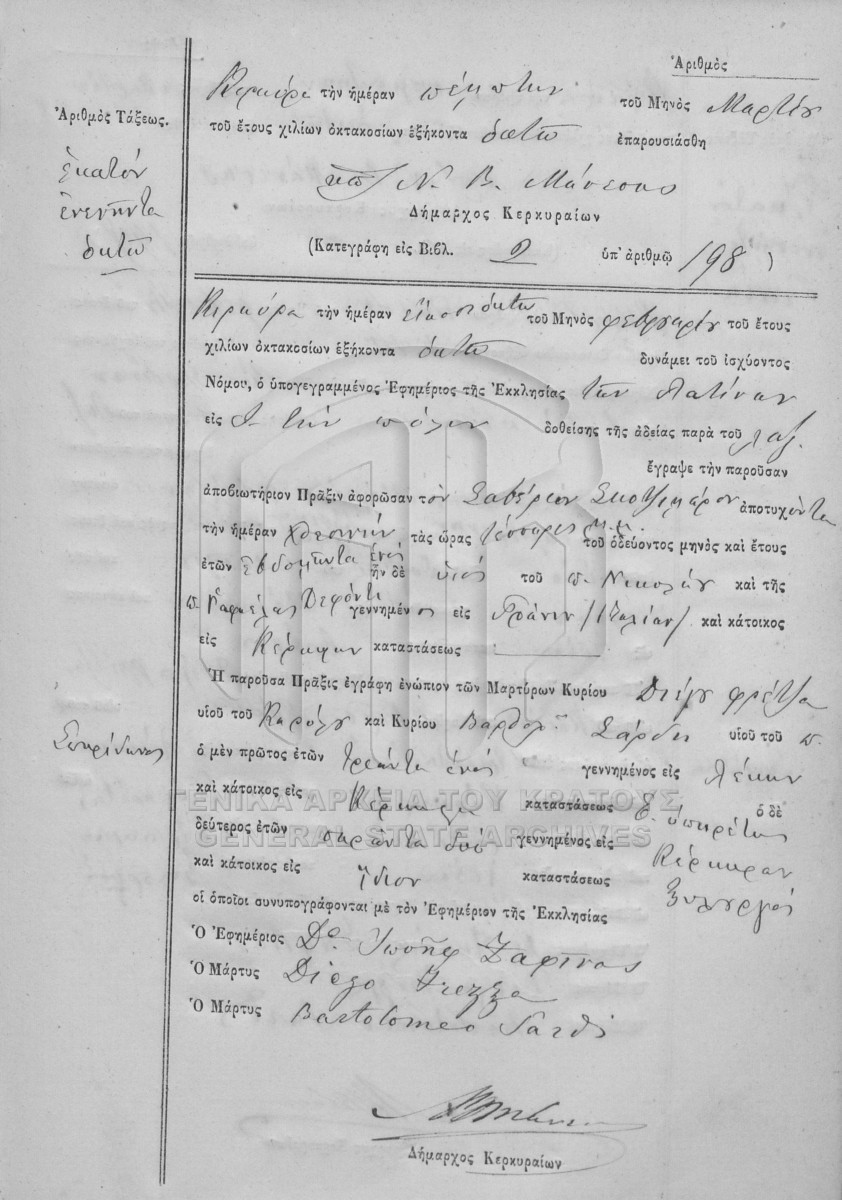 Ἀριθμὸς
Κερκύρᾳ τὴν ἡμέραν πέμπτην τοῦ Μηνὸς Μαρτίου
Ἀριθμὸς Τάξεως.
τοῦ ἔτους χιλίων ὀκτακοσίων ἑξήκοντα ὀκτὼ ἐπαρουσιάσθη
ἑκατὸν
ἐνενῆντα
ὀκτὼ
Ν. Β. Μάνεσης
Δήμαρχος Κερκυραίων
(Κατεγράφη εἰς Βιβλ. 2 ὑπ' ἀριθμῷ 198)
Κερκύρᾳ τὴν ἡμέραν εἴκοσι ὀκτὼ τοῦ Μηνὸς φεβρουαρίου τοῦ ἔτους
χιλίων ὀκτακοσίων ἑξήκοντα ὀκτὼ δυνάμει τοῦ ἰσχύοντος
Νόμου, ὁ ὑπογεγραμμένος Ἐφημέριος τῆς Ἐκκλησίας τῶν Λατίνων
εἰς τὴν πόλιν δοθείσης τῆς ἀδείας παρὰ τοῦ
ἔγραψε τὴν παροῦσαν
ἀποβιωτήριον Πρᾶξιν ἀφορῶσαν τὸν Σαβέριον ἀποτυχόντα
τὴν ἡμέραν χθεσινὴν τὰς ὥρας τέσσαρες μ.μ. τοῦ ὁδεύοντος μηνὸς καὶ ἔτους
ἐτῶν ἑβδομῆντα ἑνὸς ἦν δὲ υἱὸς τοῦ π. Νικολάου καὶ τῆς
π. Ραφαέλας Δεφόντι γεννημένος εἰς Τράνιν (Ἰταλίαν) καὶ κάτοικος
εἰς Κέρκυραν καταστάσεως
Ἡ παροῦσα Πρᾶξις ἐγράφη ἐνώπιον τῶν Μαρτύρων Κυρίου Διέγου Φρέτζα
υἱοῦ τοῦ Καρόλου καὶ Κυρίου Βαρθολ. Σάρδη υἱοῦ τοῦ π.
Σπυρίδωνος
ὁ μὲν πρῶτος ἐτῶν τριάντα ἑνὸς γεννημένος εἰς Λέκκην
καὶ κάτοικος εἰς Κέρκυραν καταστάσεως ὑπηρέτης ὁ δὲ
ΓΕΝΙΚΑ ΑΡΧΕΙΑ ΤΟΥ ΚΡΑΤΟΥΣ
GENERAL STATE ARCHIVES
δεύτερος ἐτῶν σαράντα δύο γεννημένος εἰς Κέρκυραν
καὶ κάτοικος εἰς ἴδιον καταστάσεως ξυλουργός
οἱ ὁποῖοι συνυπογράφονται μὲ τὸν Ἐφημέριον τῆς Ἐκκλησίας
Ὁ Ἐφημέριος Δν. Ἰωσὴφ Ζαφῖνος
Ὁ Μάρτυς Diego Frezza
Ὁ Μάρτυς Bartolomeo Sardi
Δήμαρχος Κερκυραίων